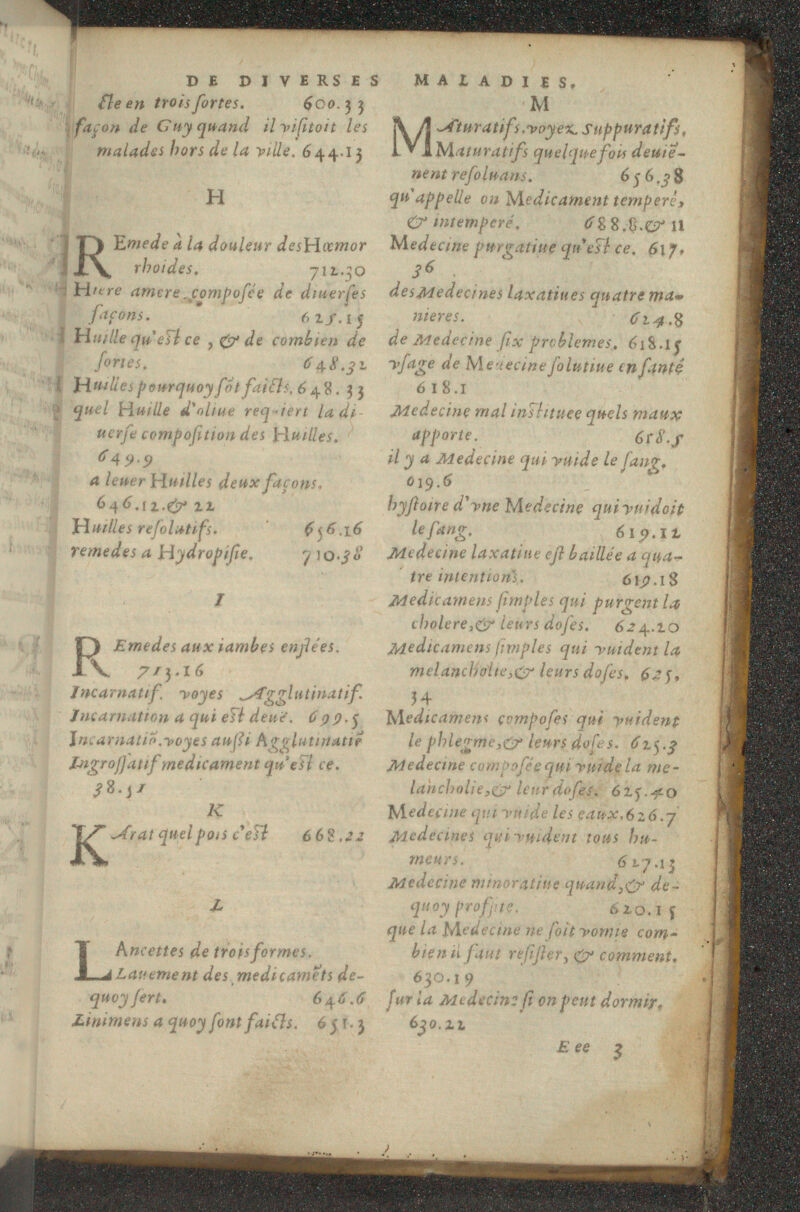 DE DIVERSES MALADIES.
ſle en trois ſortes. 600.33
façon de Guy quand il viſitoit les
malades hors de la ville. 644.13
H
REmede à la douleur des Hœmor
rhoides. 712.30
Hiere amere compoſée de diuerſes
façons. 625.15
Huille qu'eſt ce, & de combien de
ſortes. 648.32
Huilles pourquoy ſōt faicts. 648.33
quel Huille d'oliue requiert la di-
uerſe compoſition des Huilles.
649.9
a leuer Huilles deux façons.
646.12.& 22
Huilles reſolutifs. 656.16
remedes a Hydropiſie. 710.38
I
REmedes aux iambes enflées.
713.16
Incarnatif. voyes Agglutinatif.
Incarnation a qui eſt deuë. 699.5
Incarnatif.voyes auſsi Agglutinatif
Ingroſſatif medicament qu'eſt ce.
38.51
K
KArat quel pois c'eſt 668.22
L
LAncettes de trois formes.
Lauement des medicamēts de-
quoy ſert. 646.6
Linimens a quoy ſont faicts. 651.3
M
MAturatifs.voyez Suppuratifs.
Maturatifs quelquefois deuie-
nent reſoluans. 656.38
qu'appelle on Medicament temperé,
& intemperé. 688.8.& 11
Medecine purgatiue qu'eſt ce. 617.
36
des Medecines laxatiues quatre ma-
nieres. 624.8
de Medecine ſix problemes. 618.15
vſage de Medecine ſolutiue en ſanté
618.1
Medecine mal inſtituee quels maux
apporte. 618.5
il y a Medecine qui vuide le ſang.
619.6
hyſtoire d'vne Medecine qui vuidoit
le ſang. 619.12
Medecine laxatiue eſt baillée a qua-
tre intentions. 619.18
Medicamens ſimples qui purgent la
cholere,& leurs doſes. 624.20
Medicamens ſimples qui vuident la
melancholie,& leurs doſes. 625.
34
Medicamens compoſes qui vuident
le phlegme,& leurs doſes. 625.3
Medecine compoſée qui vuide la me-
lancholie,& leur doſes. 625.40
Medecine qui vuide les eaux.626.7
Medecines qui vuident tous hu-
meurs. 627.13
Medecine minoratiue quand,& de-
quoy proffite. 620.15
que la Medecine ne ſoit vomie com-
bien il faut reſiſter, & comment.
630.19
ſur la Medecine ſi on peut dormir.
630.22
Eee 3